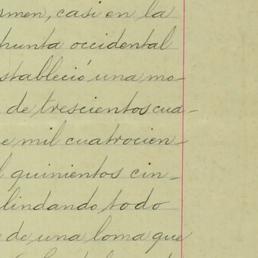 rmen, casi en la
punta occidental
stableció una mo-
de trescientos cua-
e mil cuatrocien-
l quinientos cin-
lindando todo
de una loma que